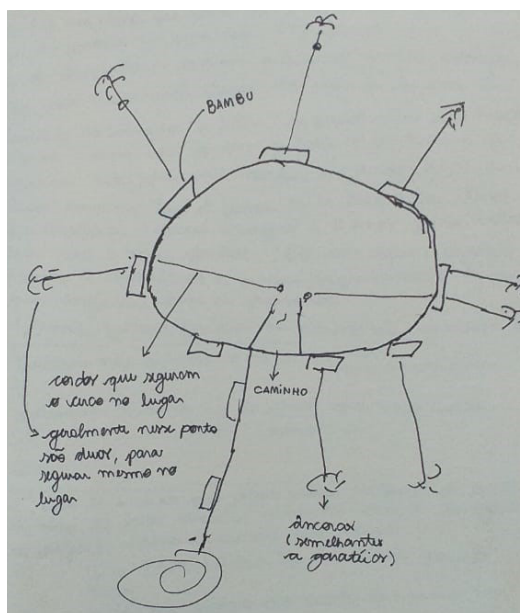 BAMBU
cordas que seguram
o cerco no lugar
geralmente nesse ponto
são duas, para
segurar mesmo no
lugar
CAMINHO
âncoras
(semelhantes
a garatéias)